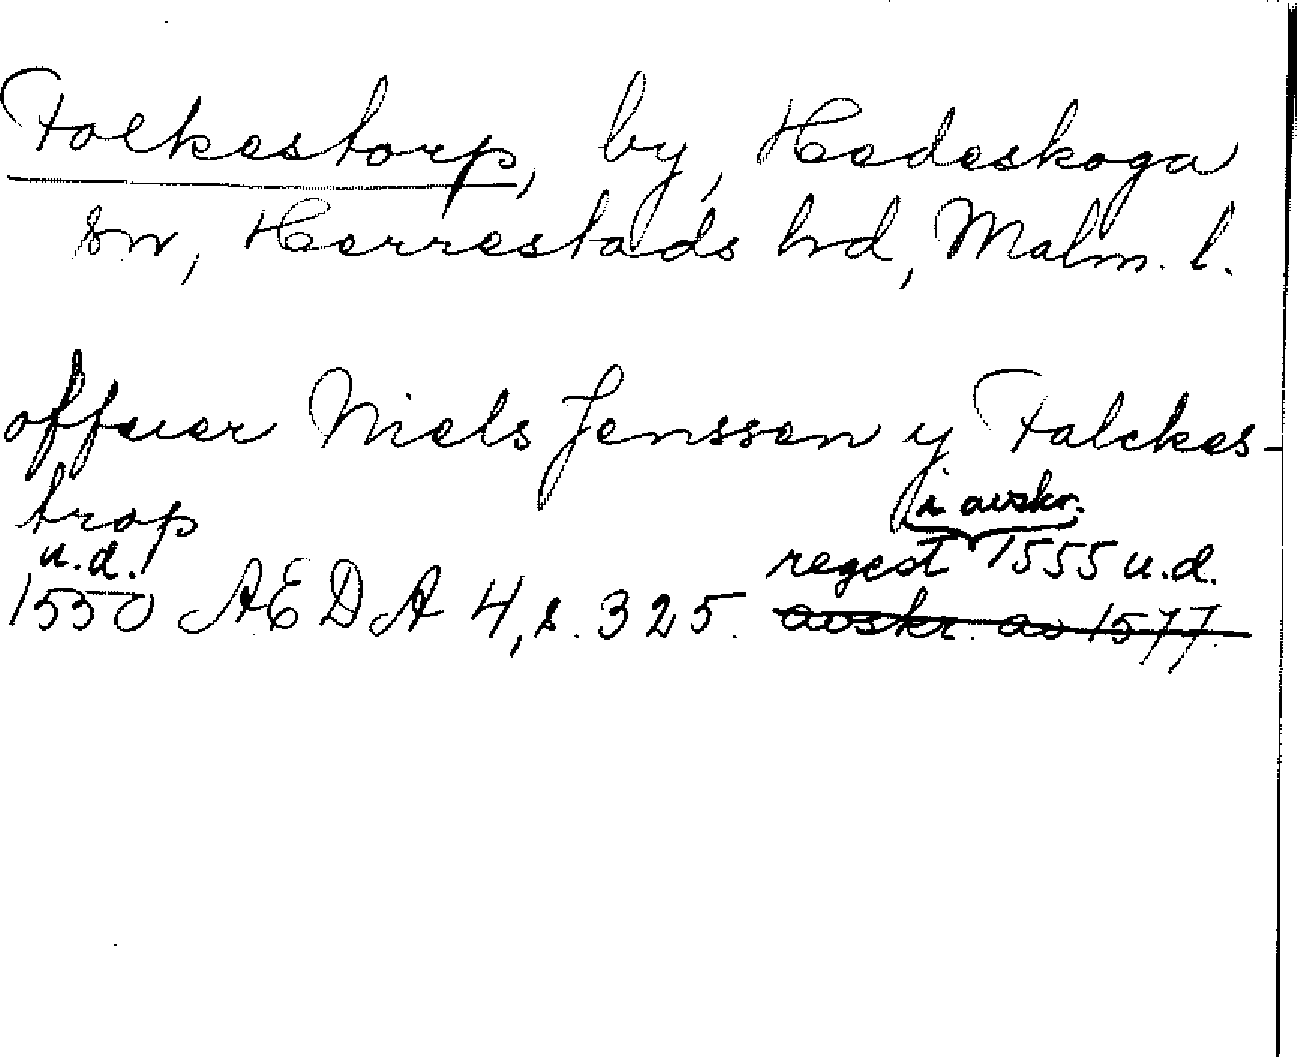 Folkestorp, by, Hedeskoga
sn, Herrestads hd, Malm. l.
offuer Niels Jenssen y Falckes-
trop
u.d.
1550 AEDA 4, s. 325. regest i avskr. 1555 u.d.
avskr. av 1577.